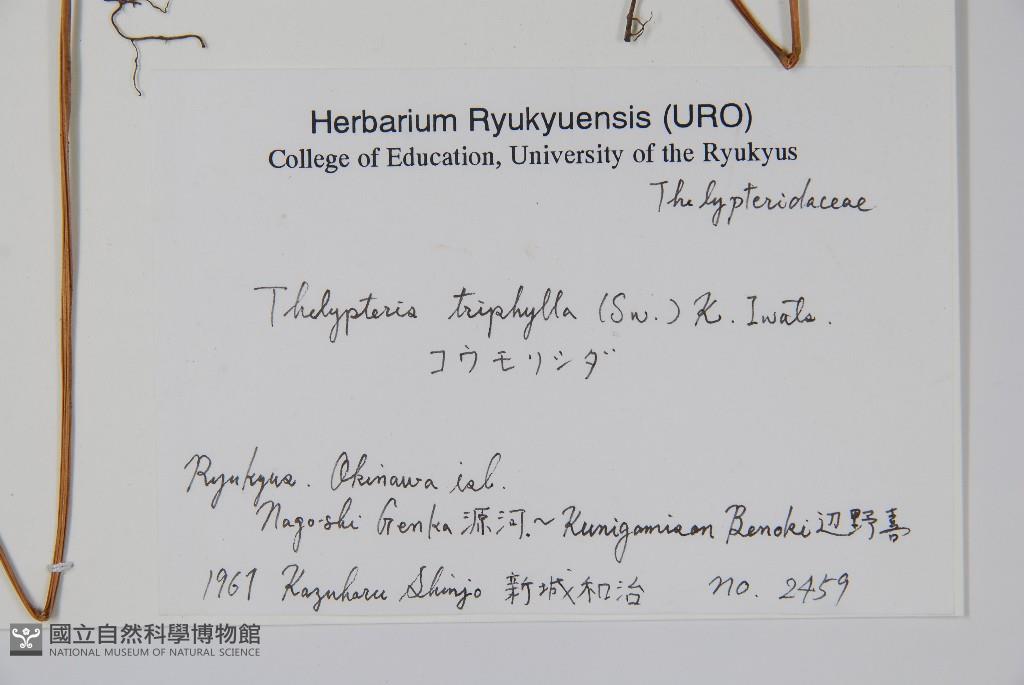 Herbarium Ryukyuensis (URO)
College of Education, University of the Ryukyus
Thelypteridaceae
Thelypteris triphylla (Sw.) K. Iwats.
コウモリシダ
Ryukyus. Okinawa isl.
Nago-shi Genka 源河.~Kunigamison Benoki 辺野喜
1967 Kazuharu Shinjo 新城和治 no. 2459
國立自然科學博物館
NATIONAL MUSEUM OF NATURAL SCIENCE